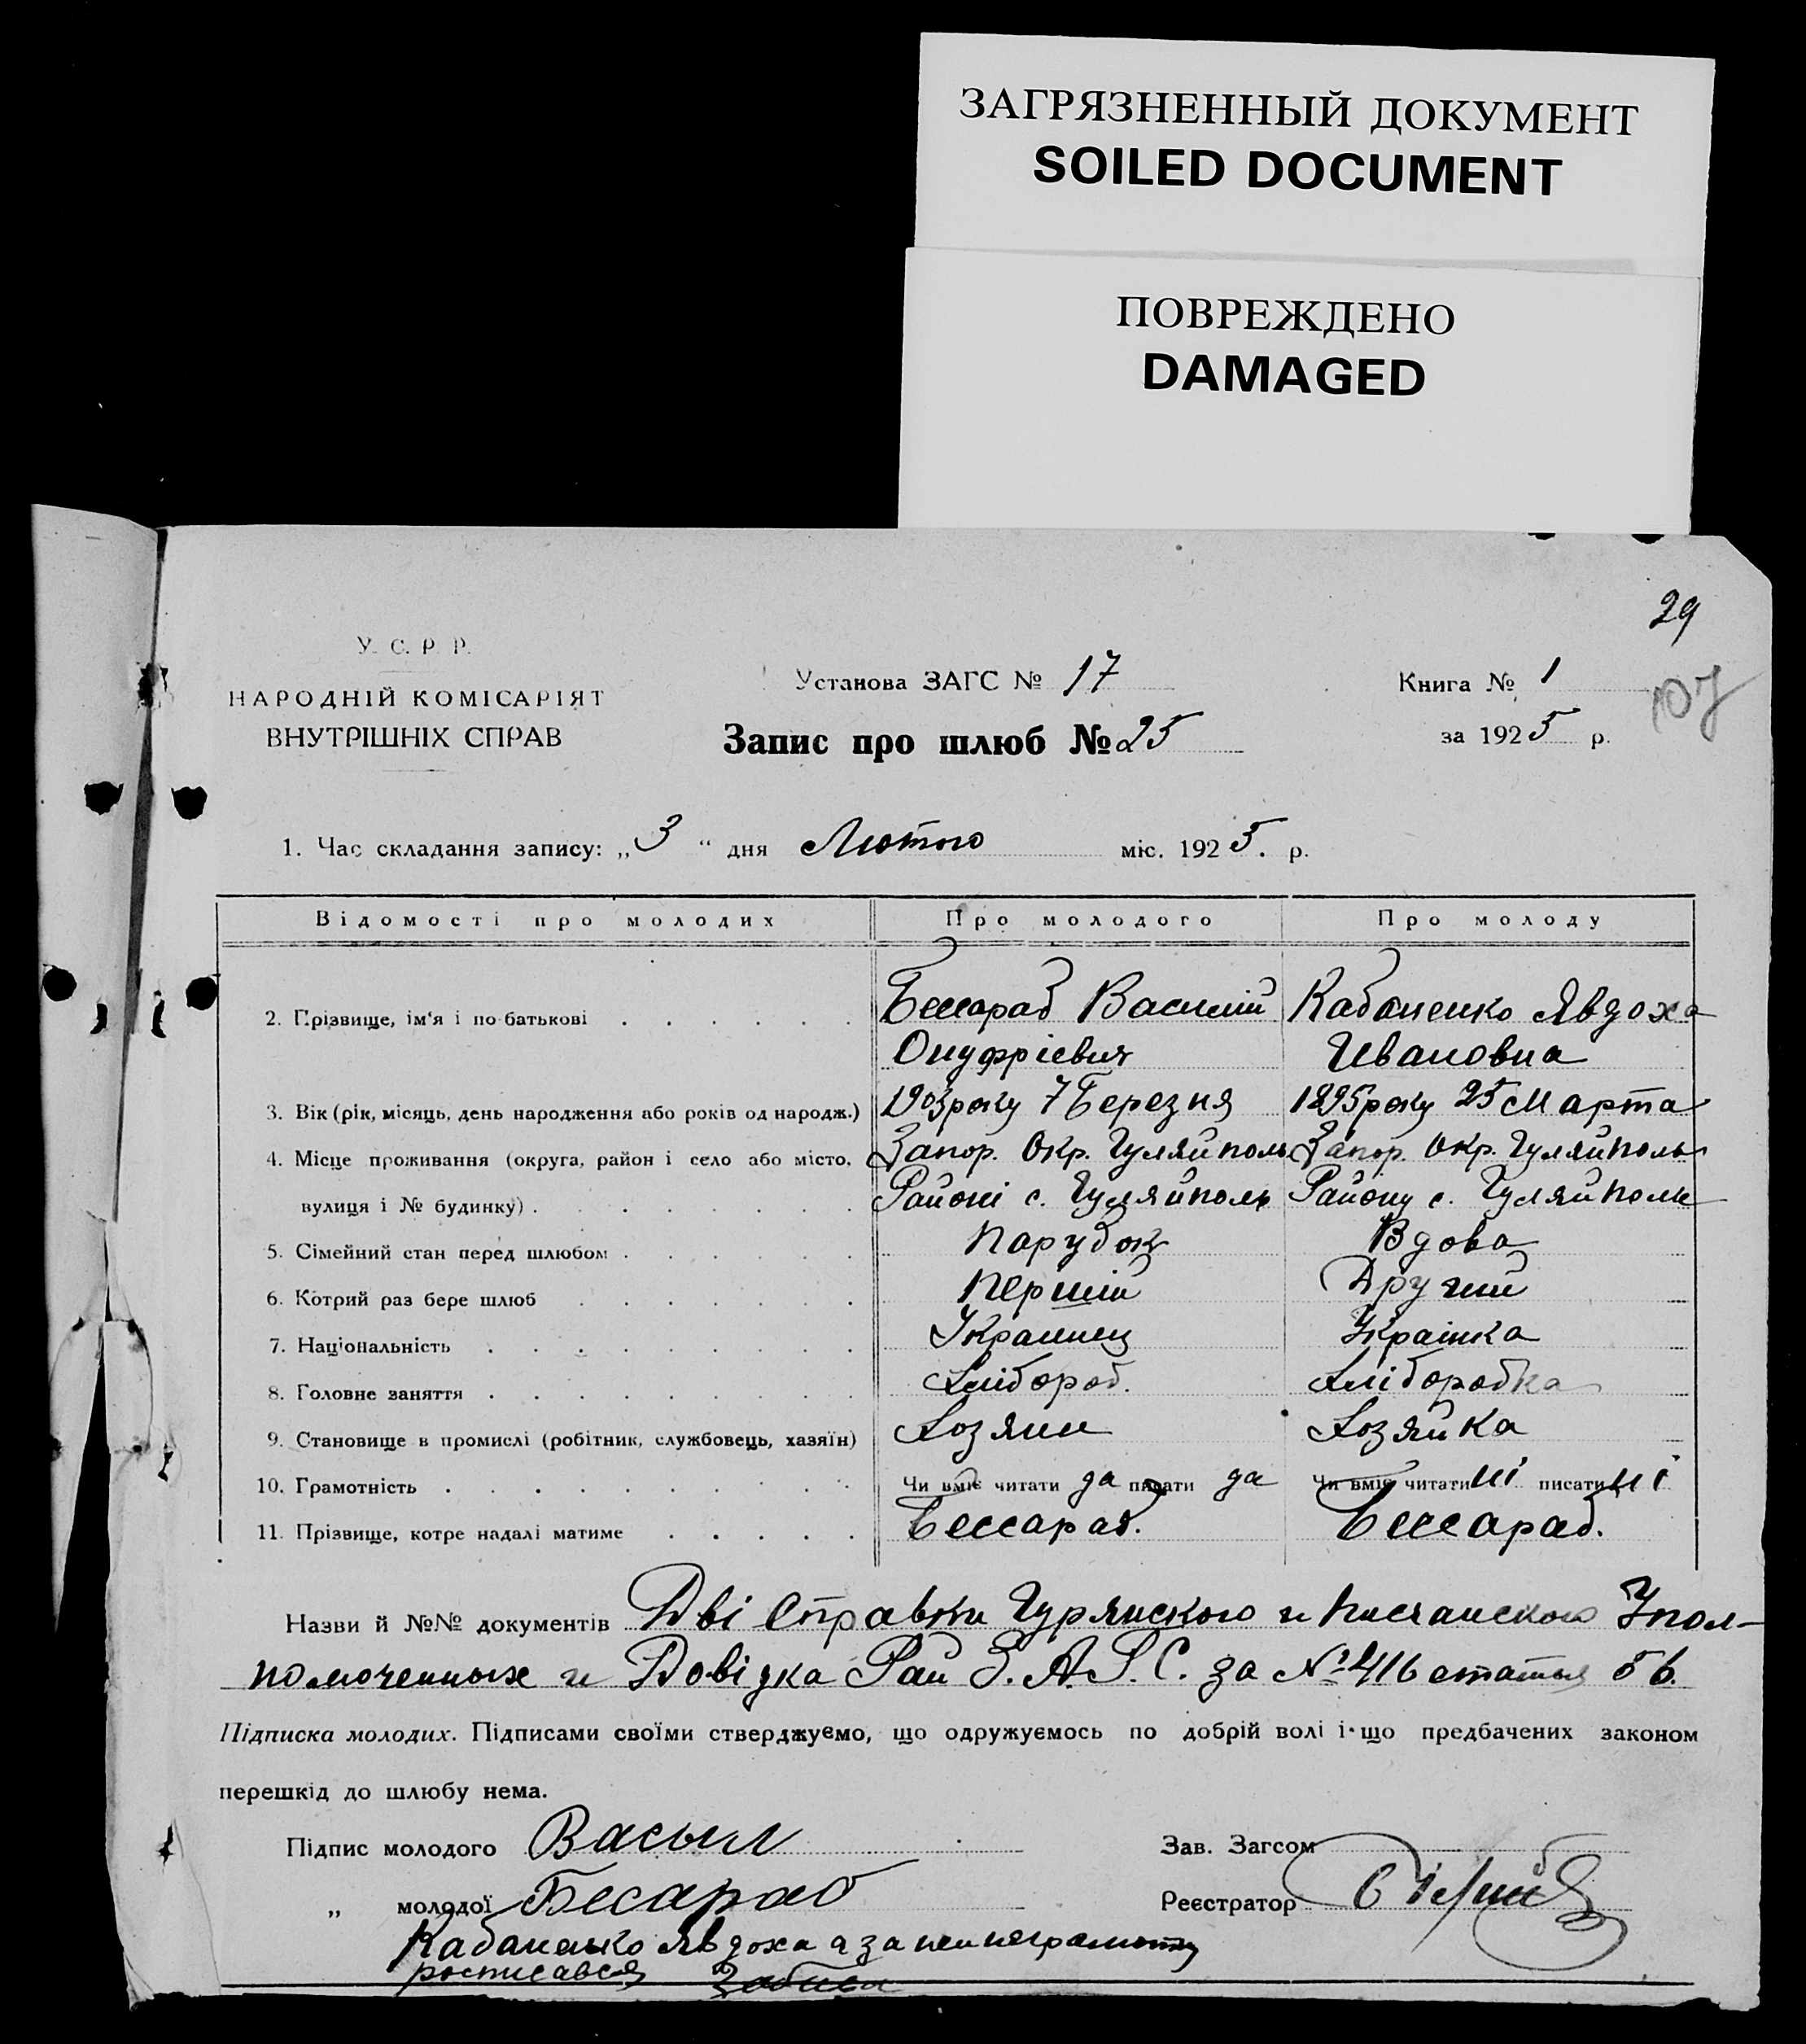 ЗАГРЯЗНЕННЫЙ ДОКУМЕНТ
SOILED DOCUMENT
ПОВРЕЖДЕНО
DAMAGED
29
107
У. С. Р. Р.
НАРОДНІЙ КОМІСАРІЯТ
ВНУТРІШНІХ СПРАВ
Установа ЗАГС № 17
Запис про шлюб № 25
Книга № 1
за 1925 р.
1. Час складання запису: „3“ дня Лютого міс. 1925. р.
Відомості про молодих Про молодого Про молоду
2. Прізвище, ім'я і по-батькові Бессараб Василій Кабаненко Явдоха
Онуфріевич Ивановна
3. Вік (рік, місяць, день народження або років од народж.) 1903 року 7 Березня 1895 року 25 Марта
4. Місце проживання (округа, район і село або місто, Запор. Окр. Гуляйполь Запор. Окр. Гуляйполь
вулиця і № будинку) Районі с. Гуляйполь Району с. Гуляйполе
5. Сімейний стан перед шлюбом Парубок Вдова
6. Котрий раз бере шлюб Перший Другий
7. Національність Украинец Украінка
8. Головне заняття Хлібороб. Хліборобка
9. Становище в промислі (робітник, службовець, хазяїн) Хозяин Хозяйка
10. Грамотність Чи вміє читати да писати да Чи вміє читати ні писати ні
11. Прізвище, котре надалі матиме Бессараб. Бессараб.
Назви й №№ документів Дві Справки Гурянского и Писчанского Упол-
номоченных и Довідка Рай З. А. Г. С. за № 416 статья 5 в.
Підписка молодих. Підписами своїми стверджуємо, що одружуємось по добрій волі і що предбачених законом
перешкід до шлюбу нема.
Підпис молодого Васыл
„ молодої Бесараб
Зав. Загсом
Реєстратор
Кабаненко Явдоха а за неи неграмотну
росписався